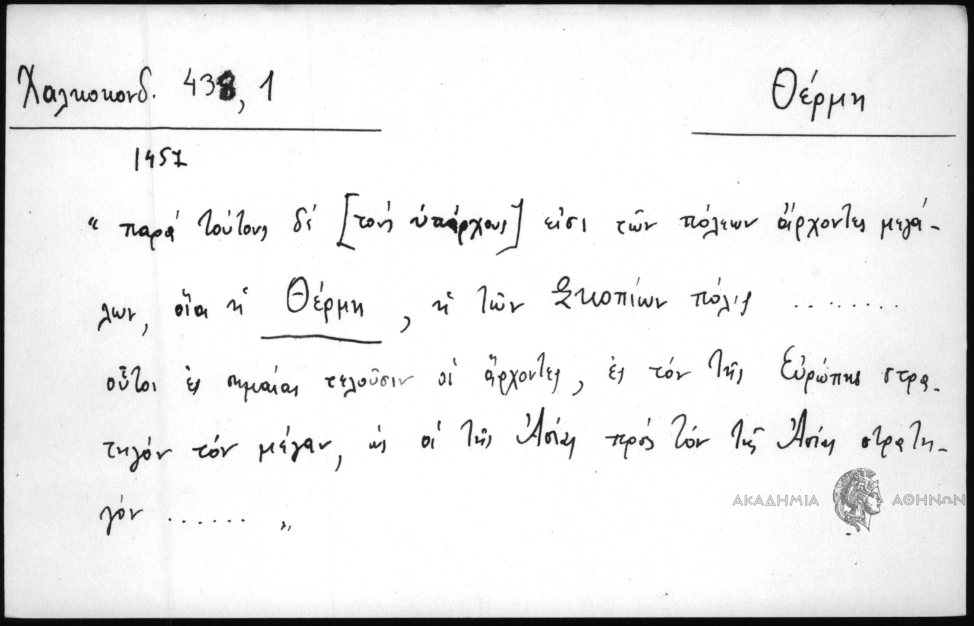 Χαλκοκονδ. 438, 1
Θέρμη
1457
“ παρά τούτους δέ [τούς ὑπάρχους] εἰσι τῶν πόλεων ἄρχοντες μεγά-
λων, οἷα ἡ Θέρμη, ἡ τῶν Σκοπίων πόλις .........
οὗτοι ἐς σημαίας τελοῦσιν οἱ ἄρχοντες, ἐς τόν τῆς Εὐρώπης στρα-
τηγόν τόν μέγαν, ὡς οἱ τῆς Ἀσίας πρός τόν τῆς Ἀσίας στρατη-
γόν ...... „
ΑΚΑΔΗΜΙΑ ΑΘΗΝΩΝ